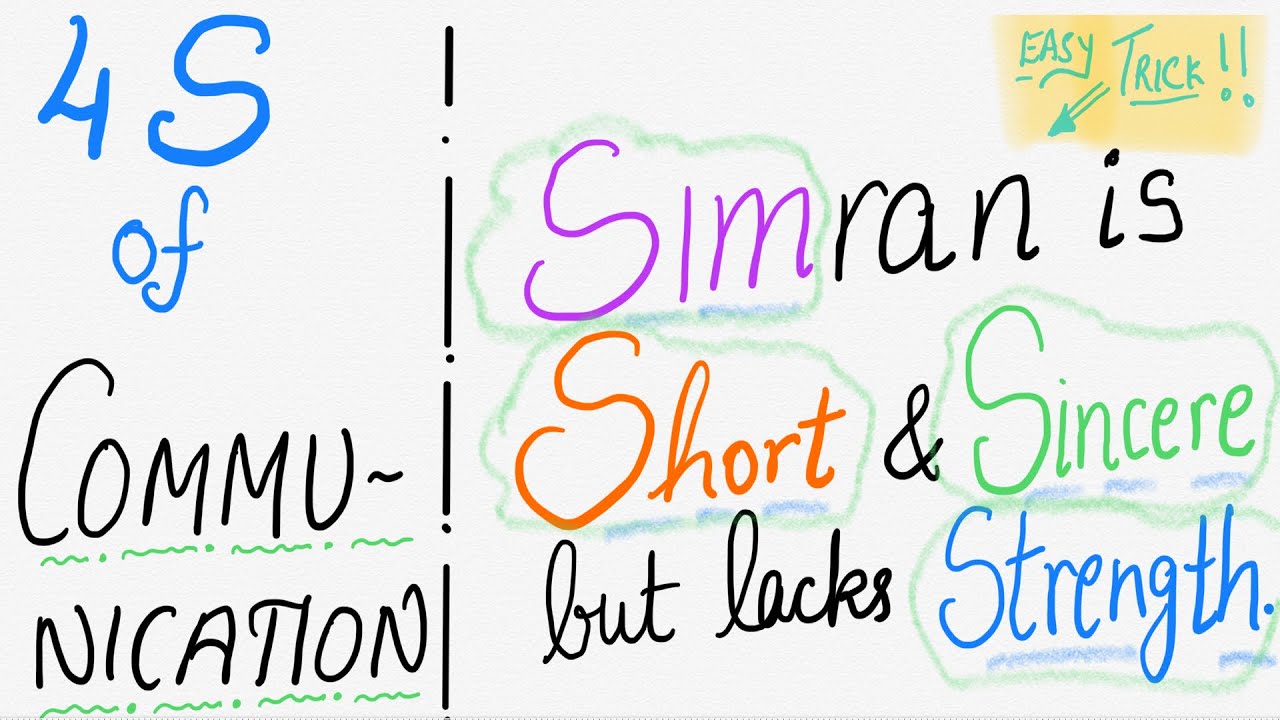 4S
of
COMMU~
NICATION
EASY TRICK!!
SImran is
Short & Sincere
but lacks Strength.